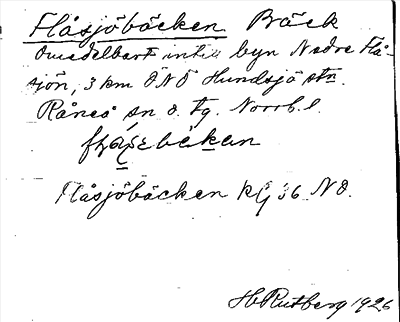 Flåsjöbäcken Bäck
Omedelbart intill byn Nedre Flå-
sjön, 3 km ÖNÖ Hundsjö stn.
Råneå sn o. tg. Norrb. l.
Flåsjöbäcken RG 36 NO.
H. Rutberg 1926